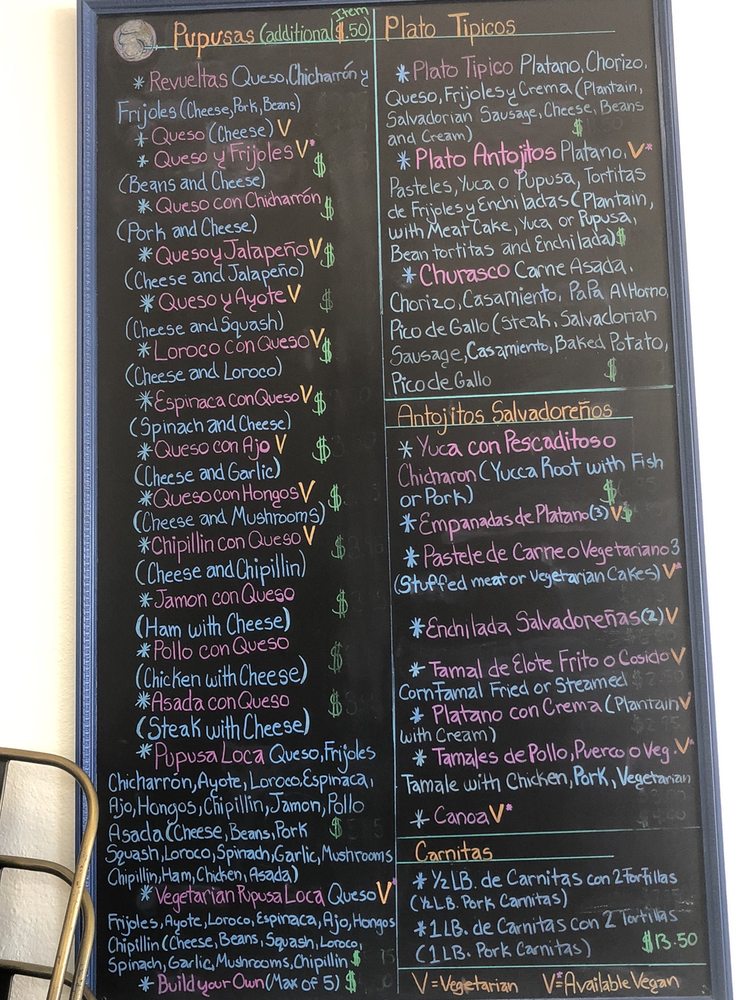 Pupusas (additional Item $.50)
* Revueltas Queso, Chicharrón y
Frijoles (Cheese, Pork, Beans)
* Queso (Cheese) V
* Queso y Frijoles V*
$
(Beans and Cheese)
* Queso con Chicharrón
$
(Pork and Cheese)
* Queso y Jalapeño V $
(Cheese and Jalapeño)
* Queso y Ayote V $
(Cheese and Squash)
* Loroco con Queso V $
(Cheese and Loroco)
* Espinaca con Queso V $
(Spinach and Cheese)
* Queso con Ajo V $
(Cheese and Garlic)
* Queso con Hongos V $
(Cheese and Mushrooms)
* Chipillin con Queso V $
(Cheese and Chipillin)
* Jamon con Queso $
(Ham with Cheese)
* Pollo con Queso $
(Chicken with Cheese)
* Asada con Queso $
(Steak with Cheese)
* Pupusa Loca Queso, Frijoles
Chicharrón, Ayote, Loroco, Espinaca,
Ajo, Hongos, Chipillin, Jamon, Pollo
Asada (Cheese, Beans, Pork $
Squash, Loroco, Spinach, Garlic, Mushrooms
Chipillin, Ham, Chicken, Asada)
* Vegetarian Pupusa Loca Queso V*
Frijoles, Ayote, Loroco, Espinaca, Ajo, Hongos
Chipillin (Cheese, Beans, Squash, Loroco,
Spinach, Garlic, Mushrooms, Chipillin $
* Build your Own (Max of 5) $
Plato Tipicos
* Plato Tipico Platano, Chorizo,
Queso, Frijoles y Crema (Plantain,
Salvadorian Sausage, Cheese, Beans
and Cream) $
* Plato Antojitos Platano, V*
Pasteles, Yuca o Pupusa, Tortitas
de Frijoles y Enchiladas (Plantain,
with Meat Cake, Yuca or Pupusa,
Bean tortitas and Enchilada) $
* Churasco Carne Asada,
Chorizo, Casamiento, Papa Al Horno,
Pico de Gallo (Steak, Salvadorian
Sausage, Casamiento, Baked Potato,
Pico de Gallo $
Antojitos Salvadoreños
* Yuca con Pescaditos o
Chicharon (Yucca Root with Fish
or Pork) $
* Empanadas de Platano (3) V $
* Pastele de Carne o Vegetariano 3
(Stuffed meat or Vegetarian Cakes) V*
* Enchilada Salvadoreñas (2) V
* Tamal de Elote Frito o Cosido V
Corn Tamal Fried or Steamed
* Platano con Crema (Plantain V
with Cream)
* Tamales de Pollo, Puerco o Veg. V*
Tamale with Chicken, Pork, Vegetarian
* Canoa V*
Carnitas
* 1/2 LB. de Carnitas con 2 Tortillas
(1/2 LB. Pork Carnitas)
* 1 LB. de Carnitas con 2 Tortillas
(1 LB. Pork Carnitas) $13.50
V = Vegetarian V* = Available Vegan